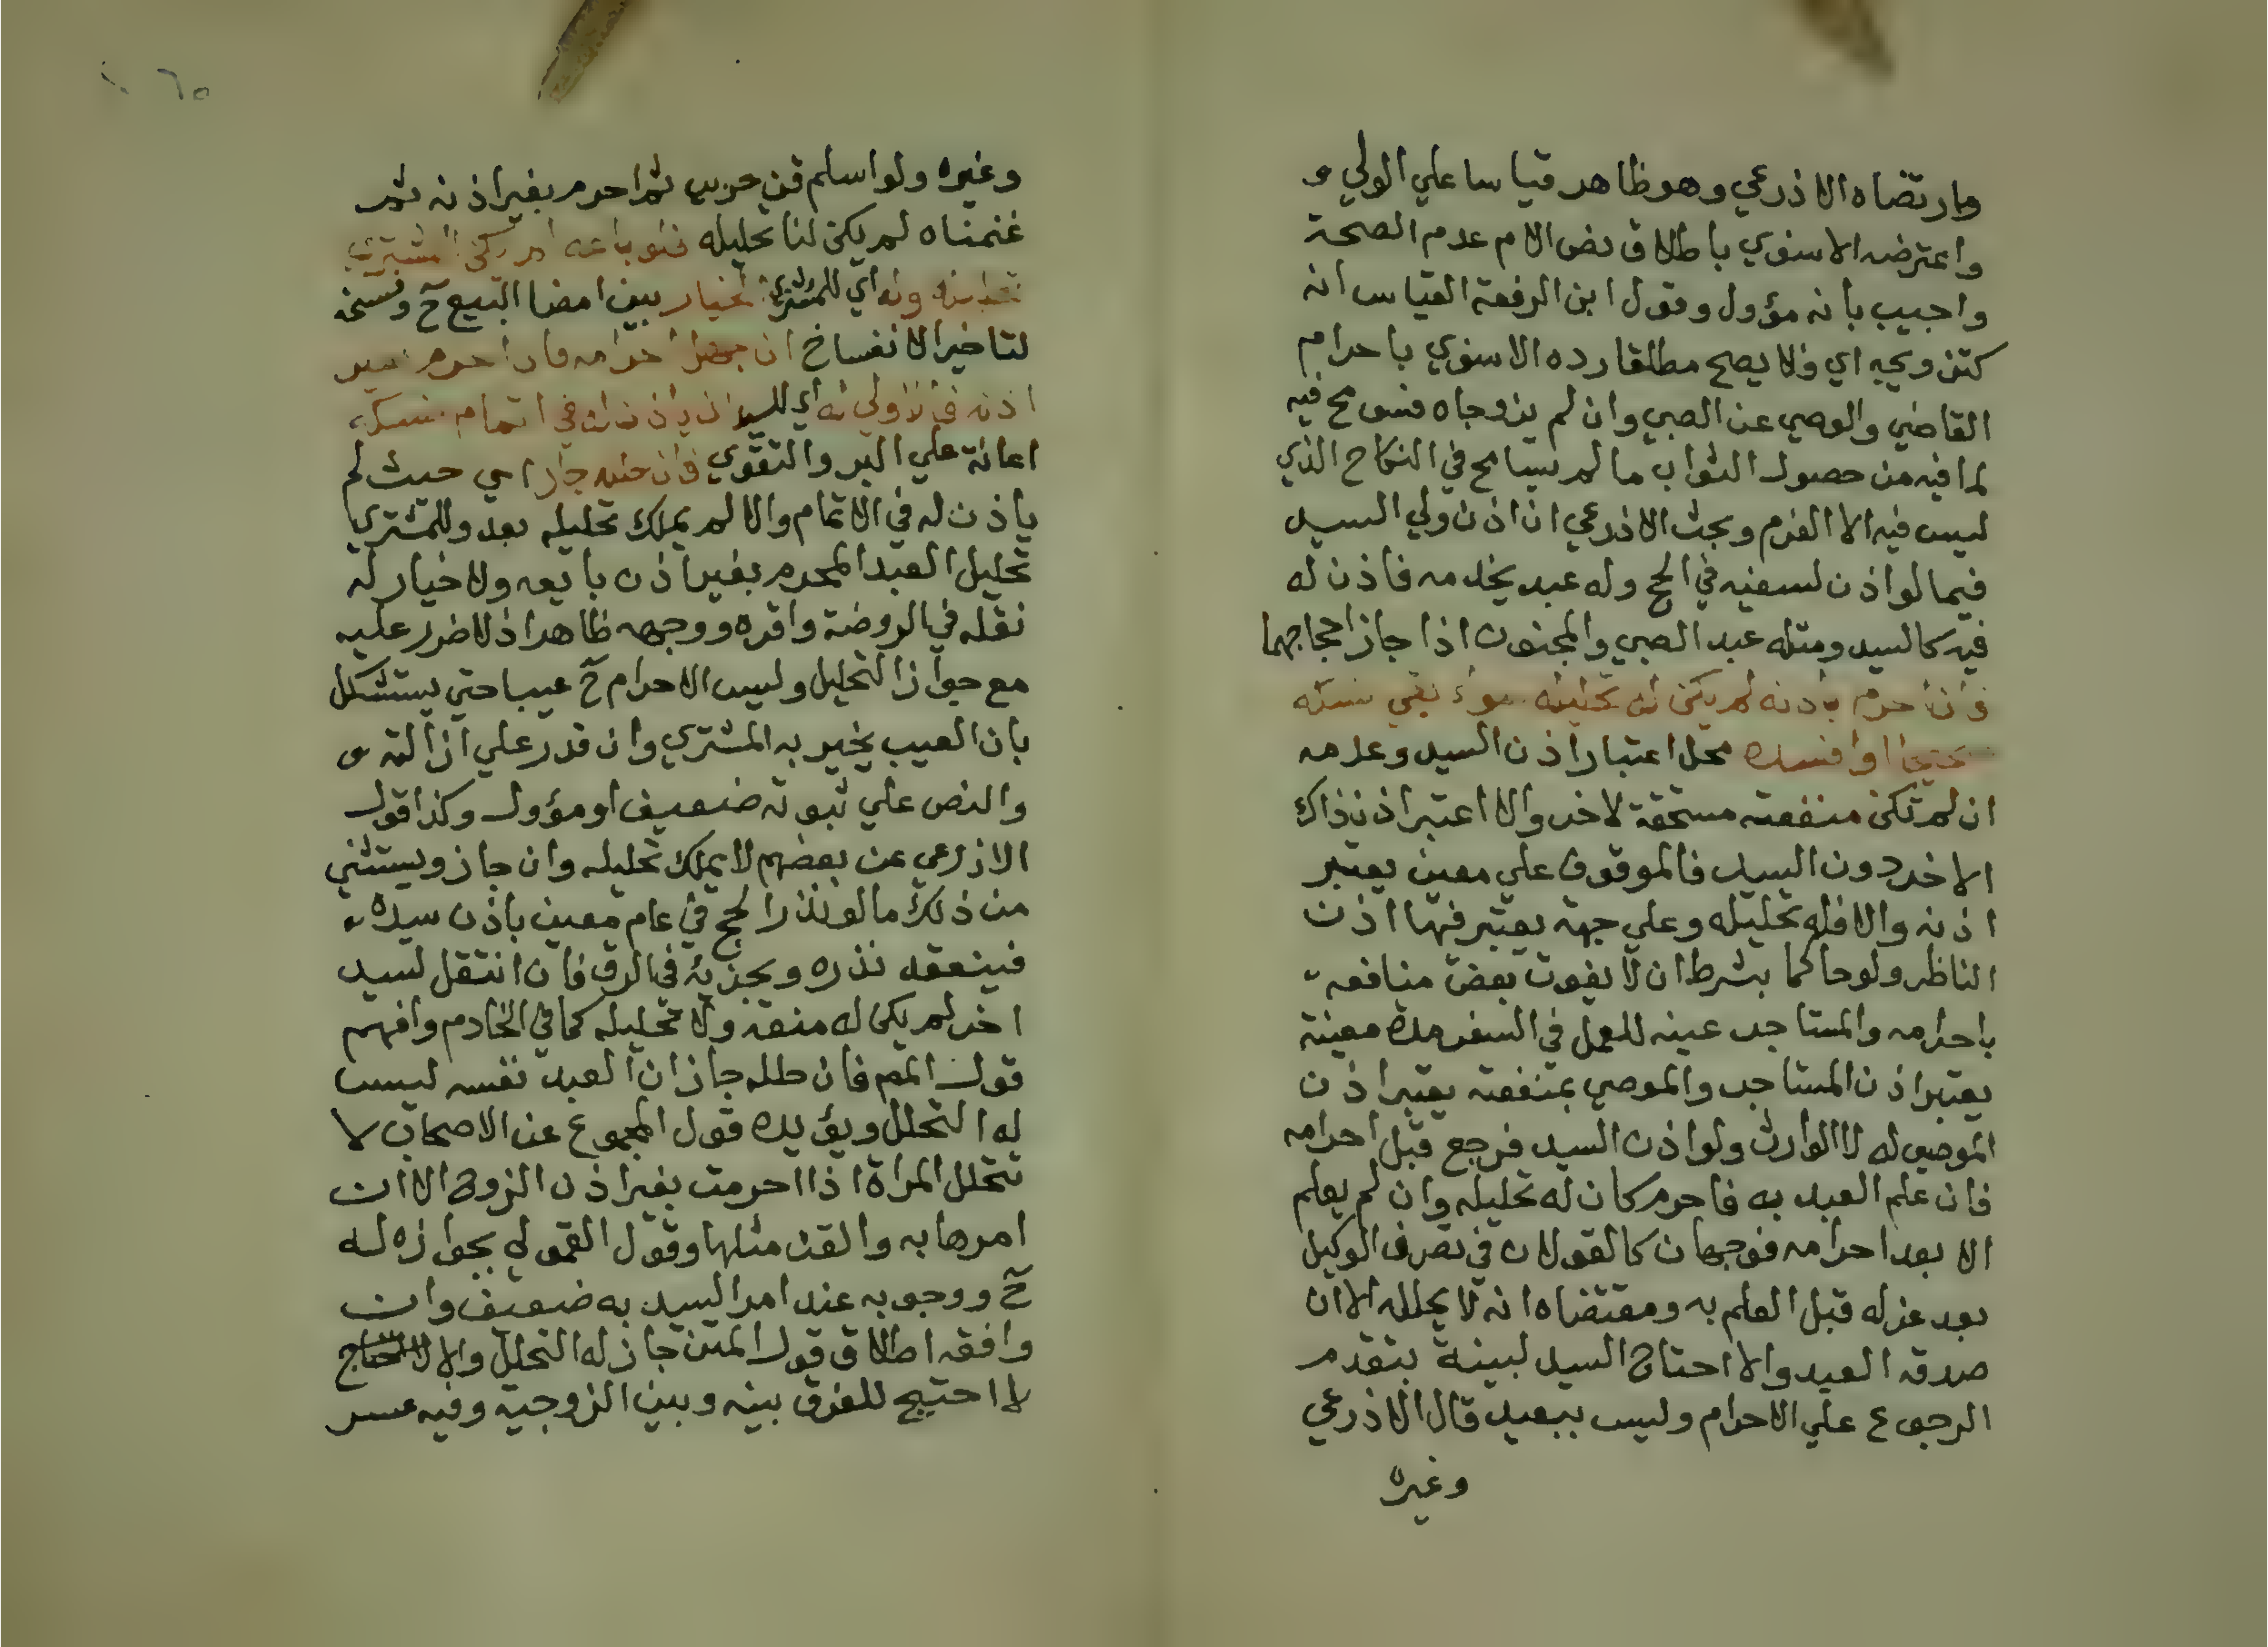 وارتضاه الاذرعي وهو ظاهر قياسا علي الولي و
واعترضه الاسنوي باطلاق نص الام عدم الصحة
واجيب بانه مؤول وقول ابن الرفعة القياس انه
كتزويجه اي ولا يصح مطلقا رده الاسنوي باحرام
القاضي والوصي عن الصبي وان لم يزوجاه فسومح فيه
لما فيه من حصول الثواب ما لم يسامح في النكاح الذي
ليس فيه الا الغرم وبحث الاذرعي ان اذن ولي السيد
فيما لو اذن لسفيه في الحج وله عبد يخدمه فاذن له
فيه كالسيد ومثله عبد الصبي والمجنون اذا جاز احجاجهما
فان احرم باذنه لم يكن له تحليله سواء بقي نسكه
صحيحا او افسده محل اعتبار اذن السيد وعدمه
ان لم تكن منفعته مستحقة لاخر والا اعتبر اذن ذاك
الاخر دون السيد فالموقوف علي معين يعتبر
اذنه والا فله تحليله وعلي جهة يعتبر فيها اذن
الناظر ولو حاكما بشرط ان لا يفوت بعض منافعه
باحرامه والمستاجر عينه للعمل في السفر مدة معينة
يعتبر اذن المستاجر والموصي بمنفعته يعتبر اذن
الموصي له لا الوارث ولو اذن السيد فرجع قبل احرامه
فان علم العبد به فاحرم كان له تحليله وان لم يعلم
الا بعد احرامه فوجهان كالقولان في تصرف الوكيل
بعد عزله قبل العلم به ومقتضاه انه لا يحلله الا ان
صدقه العبد والا احتاج السيد لبينة بتقدم
الرجوع علي الاحرام وليس ببعيد قال الاذرعي
وغيره
٦٥
وغيره ولو اسلم قن حربي ثم احرم بغير اذنه ثم
غنمناه لم يكن لنا تحليله فلو باعه لم يكن للمشتري
تحليله وله اي للمشتري الخيار بين امضا البيع ح وفسخه
لتاخير الانفساخ ان جهل احرامه فاذا احرم بغير
اذنه فالاولي له اي للسيد ان ياذن له في اتمام نسكه
اعانة علي البر والتقوي فان حلله جاز اي حيث لم
ياذن له في الاتمام والا لم يملك تحليله بعد وللمشتري
تحليل العبد المحرم بغير اذن بايعه ولا خيار له
نقله في الروضة واقره ووجهه ظاهر اذ لا ضرر عليه
مع جواز التحليل وليس الاحرام ح عيبا حتي يستشكل
بان العيب يخير به المشتري وان قدر علي ازالته و
والنص علي ثبوته ضعيف او مؤول وكذا قول
الاذرعي عن بعضهم لا يملك تحليله وان جاز ويستثني
من ذلك ما لو نذر الحج في عام معين باذن سيده
فينعقد نذره ويجزيه في الرق فان انتقل لسيد
اخر لم يكن له منعه ولا تحليله كما في الخادم وافهم
قول المص فان حلله جاز ان العبد نفسه ليس
له التحلل ويؤيده قول المجموع عن الاصحاب لا
تتحلل المراة اذا احرمت بغير اذن الزوج الا ان
امرها به والقن مثلها وقول القمولي بجوازه له
ح ووجوبه عند امر السيد به ضعيف وان
وافقه اطلاق قول المتن جاز له التحلل والا
لا احتيج للفرق بينه وبين الزوجية وفيه عسر